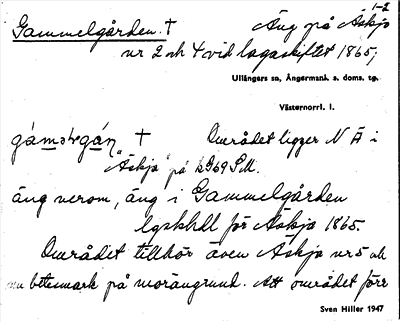 1-2
Gammelgården. † Äng på Äskja
nr 2 och 4 vid lagaskiftet 1865;
Ullångers sn, Ångermanl. s. doms. tg.
Västernorrl. l.
† Området ligger N Ä i
"Äskja" på
äng verom, äng i Gammelgården
lgskhdl för Äskja 1865.
Området tillhör även Äskja nr 5 och
nu betesmark på morängrund. Att området förr
Sven Hiller 1947